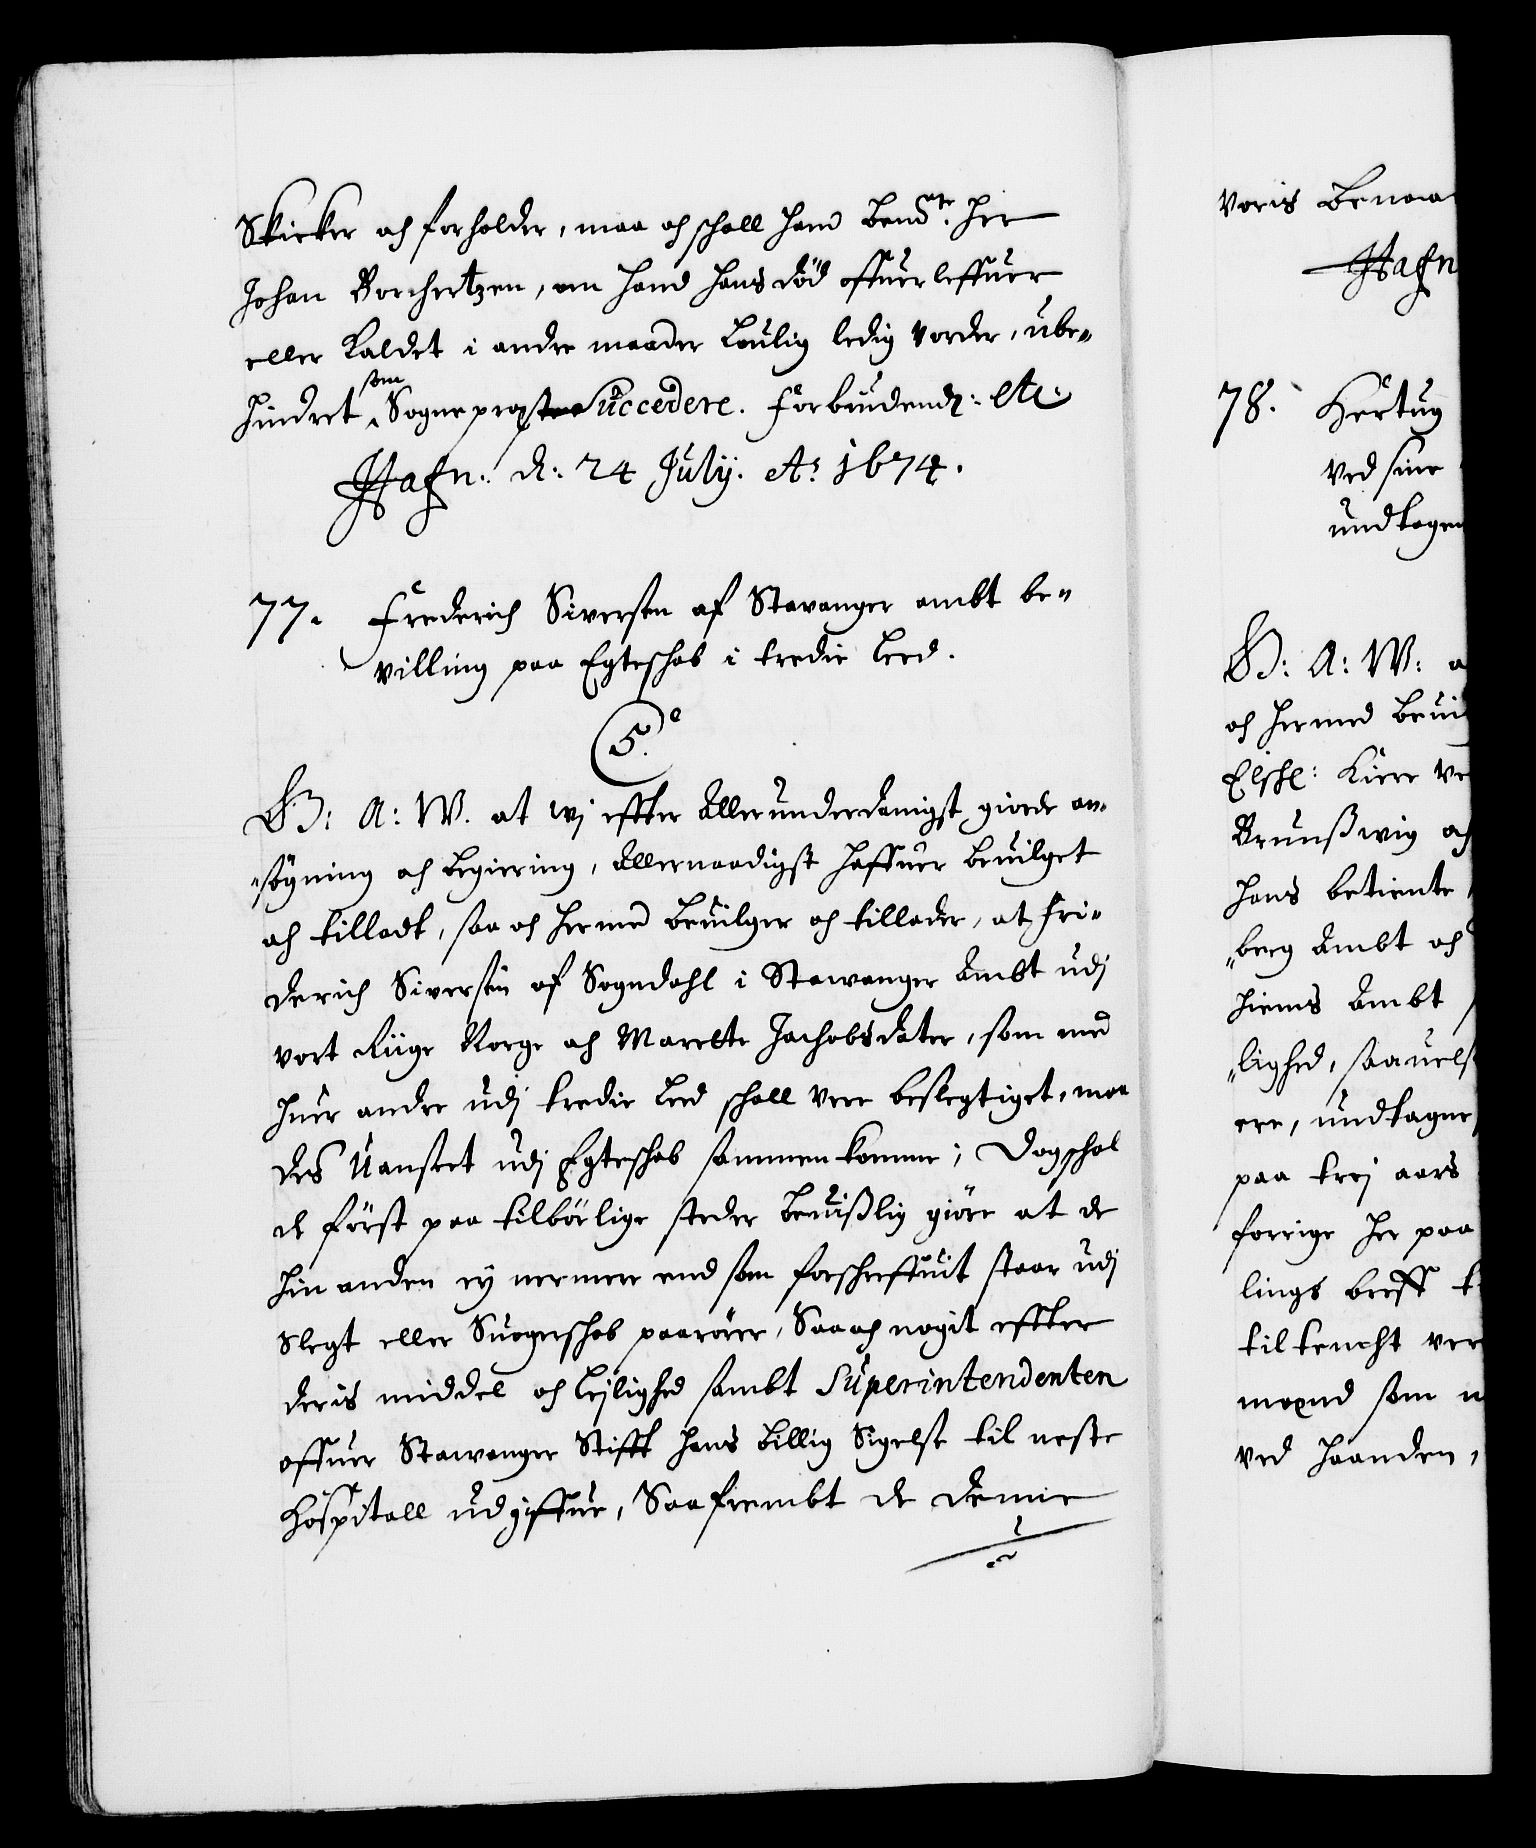 Skicker och forholder, maa och schall hand bemte: Her
Johan Borchertzen, om hand hans död offuerleffuer
eller Kaldet i andre maader loulig ledig vorder, ube-
hindret som Sognepræst Succedere. Forbiudendis: etc.
Hafn: d: 24 Julij. Ao 1674.
77. Frederich Siversen af Stavanger ambt be-
villing paa Egteschab i tredie Leed.
G: A: W. at wi effter Allerunderdanigst giorde an-
søgning och begiering, Allernaadigst haffuer beuilget
och tilladt, saa och hermed beuilger och tillader, at Fri-
derich Siversen af Sogndahl i Stawanger Ambt udj
vort Riige Norge och Marette Jachobsdater, som med
huer andre udj tredie Leed schall vere beslegtiget, maa
des Uanseet udj Egteschab sammenkomme; Dog schal
de först paa tilbörlige steder beuißlig giöre at de
hin anden ey nermere end som forscheffuit staar udj
Slegt eller Suogerschab paarörer, Saa och nogit effter
deris middel och lejlighed sambt Superintendenten
offuer Stawanger Stifft hans billig Sigelse til neste
Hospitall udgiffue, Saafrembt de denne
voris benaa
Hafn
78. Hertug
ved sine
undtagen
G: A: W: a
och hermed beuil
Elskl: Kiere ve
Brunßwig och
hans betiente
berg Ambt och
hiems Ambt
lighed, saauels
ere, undtagne
paa trej aars
forrige her paa
lings breff t
tiltencht ver
moxnd som n
ved haanden,